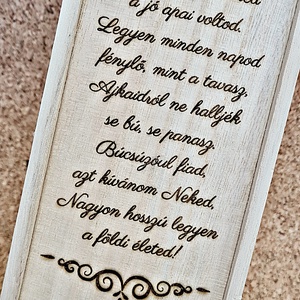 a jó apai voltod.
Legyen minden napod
fénylő, mint a tavasz,
Ajkaidról ne halljék
se bú, se panasz.
Búcsúzóul fiad,
azt kívánom Neked,
Nagyon hosszú legyen
a földi életed!